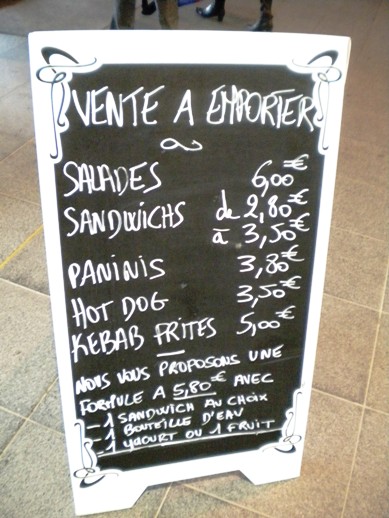 VENTE A EMPORTER
SALADES 6,00€
SANDWICHS de 2,80€
à 3,50€
PANINIS 3,80€
HOT DOG 3,50€
KEBAB FRITES 5,00€
NOUS VOUS PROPOSONS UNE
FORMULE A 5,80€ AVEC
- 1 SANDWICH AU CHOIX
- 1 BOUTEILLE D'EAU
- 1 YAOURT OU 1 FRUIT